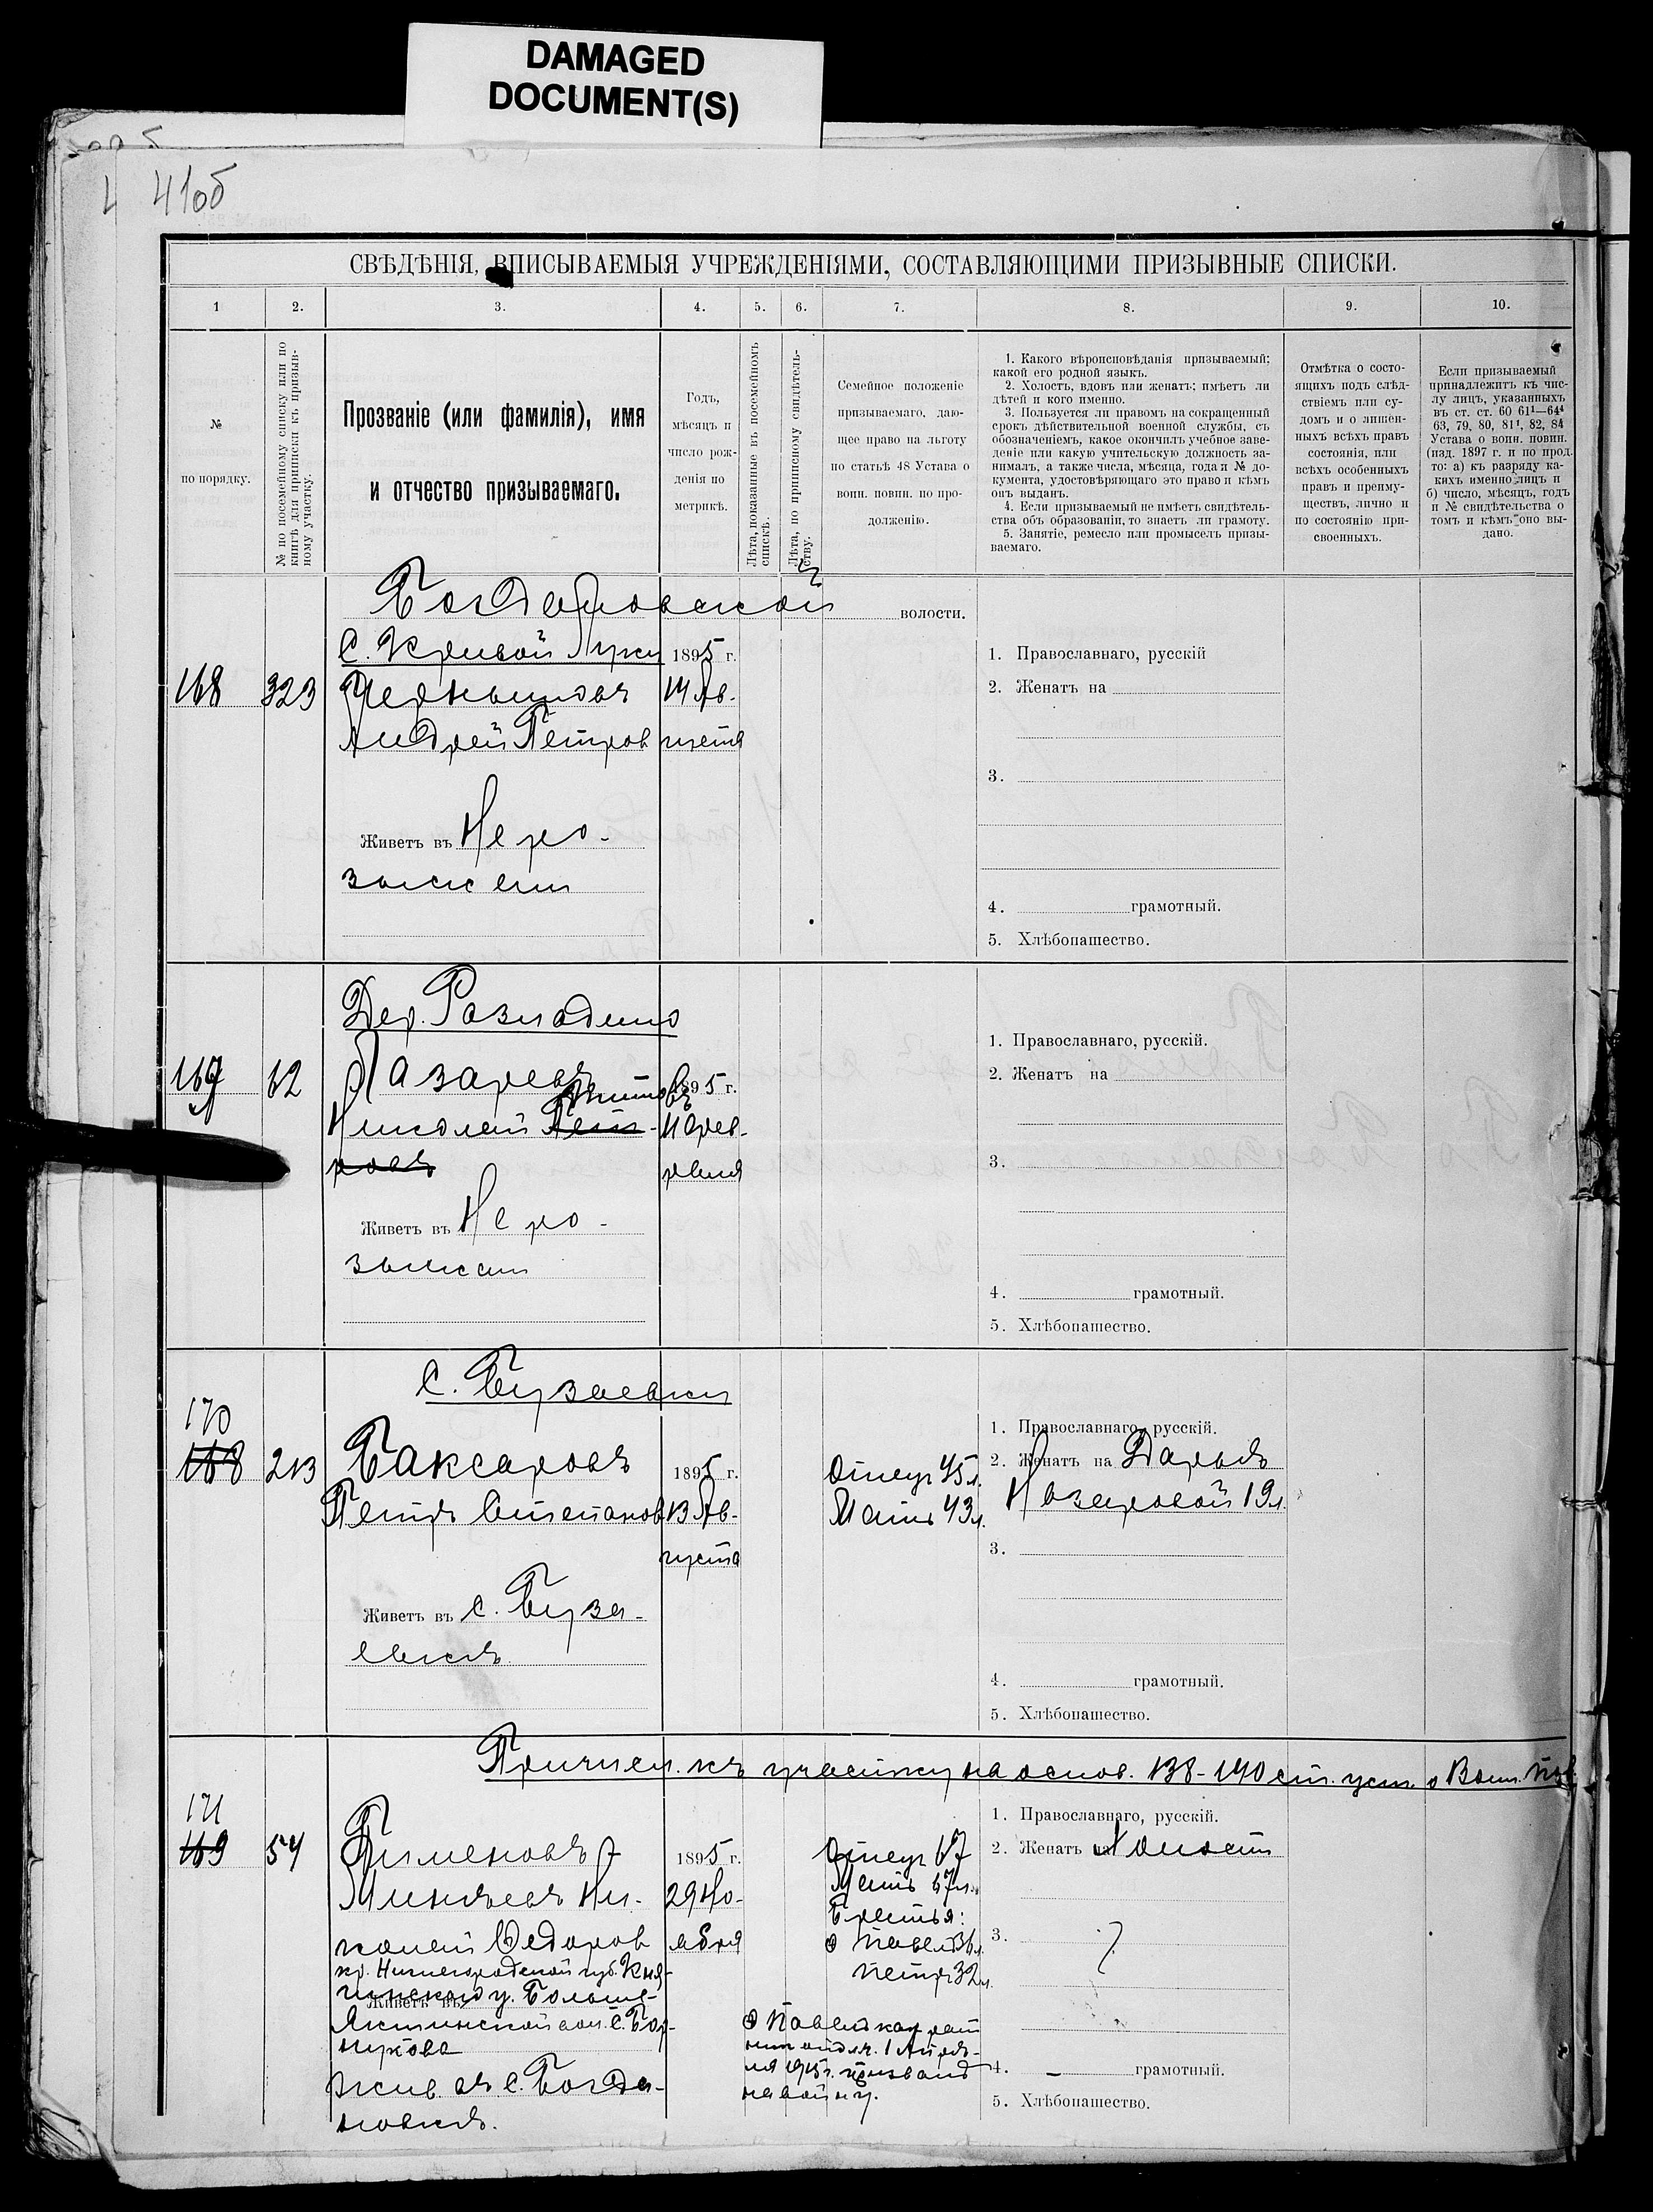 DAMAGED
DOCUMENT(S)
41об
СВѢДѢНІЯ, ВПИСЫВАЕМЫЯ УЧРЕЖДЕНІЯМИ, СОСТАВЛЯЮЩИМИ ПРИЗЫВНЫЕ СПИСКИ.
1 2. 3. 4. 5. 6. 7. 8. 9. 10.
№
по порядку.
№ по посемейному списку или по
книгѣ для приписки къ призыв-
ному участку.
Прозваніе (или фамилія), имя
и отчество призываемаго.
Годъ,
мѣсяцъ и
число рож-
денія по
метрикѣ.
Лѣта, показанные въ посемейномъ
спискѣ.
Лѣта, по приписному свидѣтель-
ству.
Семейное положеніе
призываемаго, даю-
щее право на льготу
по статьѣ 48 Устава о
воин. повин. по про-
долженію.
1. Какого вѣроисповѣданія призываемый;
какой его родной языкъ.
2. Холостъ, вдовъ или женатъ; имѣетъ ли
дѣтей и кого именно.
3. Пользуется ли правомъ на сокращенный
срокъ дѣйствительной военной службы, съ
обозначеніемъ, какое окончилъ учебное заве-
деніе или какую учительскую должность за-
нималъ, а также числа, мѣсяца, года и № до-
кумента, удостовѣряющаго это право и кѣмъ
онъ выданъ.
4. Если призываемый не имѣетъ свидѣтель-
ства объ образованіи, то знаетъ ли грамоту.
5. Занятіе, ремесло или промыселъ призы-
ваемаго.
Отмѣтка о состо-
ящихъ подъ слѣд-
ствіемъ или су-
домъ и о лишен-
ныхъ всѣхъ правъ
состоянія, или
всѣхъ особенныхъ
правъ и преиму-
ществъ, лично и
по состоянію при-
своенныхъ.
Если призываемый
принадлежитъ къ чис-
лу лицъ, указанныхъ
въ ст. ст. 60 61¹—64⁴
63, 79, 80, 81¹, 82, 84
Устава о воин. повин.
(изд. 1897 г. и по прод.
то: а) къ разряду ка-
кихъ именно лицъ и
б) число, мѣсяцъ, годъ
и № свидѣтельства о
томъ и кѣмъ оно вы-
дано.
Богдановской волости.
С. Кривой Луки 1895 г.
168 323 Чернышовъ 14 Ав-
Андрей Петров густа
Живетъ въ Не ро-
зысканъ
1. Православнаго, русскій
2. Женатъ на
3.
4. грамотный.
5. Хлѣбопашество.
Дер.
169 62 Лазаревъ 1895 г.
Николай Пет-
ровъ
Живетъ въ Не ро-
зысканъ
1. Православнаго, русскій.
2. Женатъ на
3.
4. грамотный.
5. Хлѣбопашество.
С. Бузаевки
170
168 213 Баксаровъ 1895 г.
Петръ Степанов 13 Ав-
густа
Отецъ 45 л.
Мать 43 л.
Живетъ въ с. Буза-
евкѣ
1. Православнаго, русскій.
2. Женатъ на Дарьѣ
Назаровой 19 л.
3.
4. грамотный.
5. Хлѣбопашество.
Причисл. къ участку на основ. 138-140 ст. уст. о Воин. Пов.
171
169 54 Пименовъ 1895 г.
Минѣевъ Ни-
колай Ѳедоров
29 Но-
ября
кр. Нижегородской губ. Кня-
гинскаго у. Больше-
Живетъ въ
Якшинской вол. С. Бор-
нукова
жив. въ с. Богда-
новкѣ.
Отецъ 67
Мать 57 л.
Братья:
Павелъ 36 л.
Петръ 32 л.
Павелъ как рат
1 Апрѣ-
ля 1915 г. призванъ
на войну.
1. Православнаго, русскій.
2. Женатъ на Холостъ
3.
4. — грамотный.
5. Хлѣбопашество.